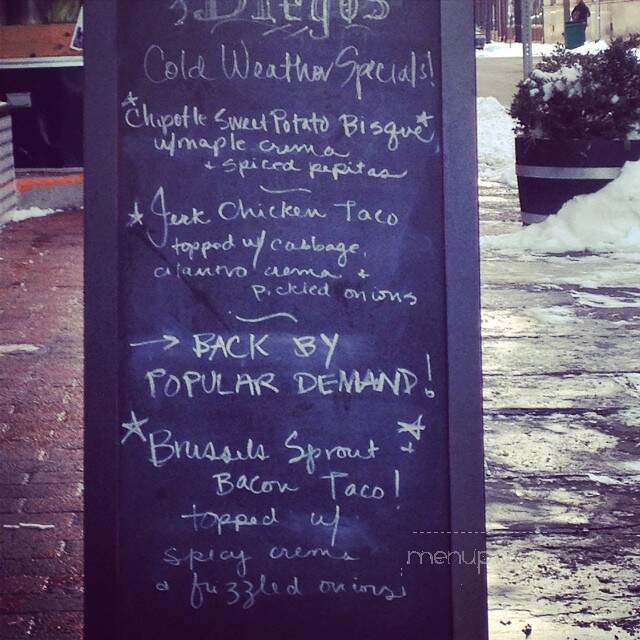 Diegos
Cold Weather Specials!
Chipotle Sweet Potato Bisque
w/maple crema
+ spiced pepitas
Jerk Chicken Taco
topped w/ cabbage,
cilantro crema +
pickled onions
→ BACK BY
POPULAR DEMAND!
Brussels Sprout +
Bacon Taco!
topped w/
spicy crema
+ fuzzled onions
menup